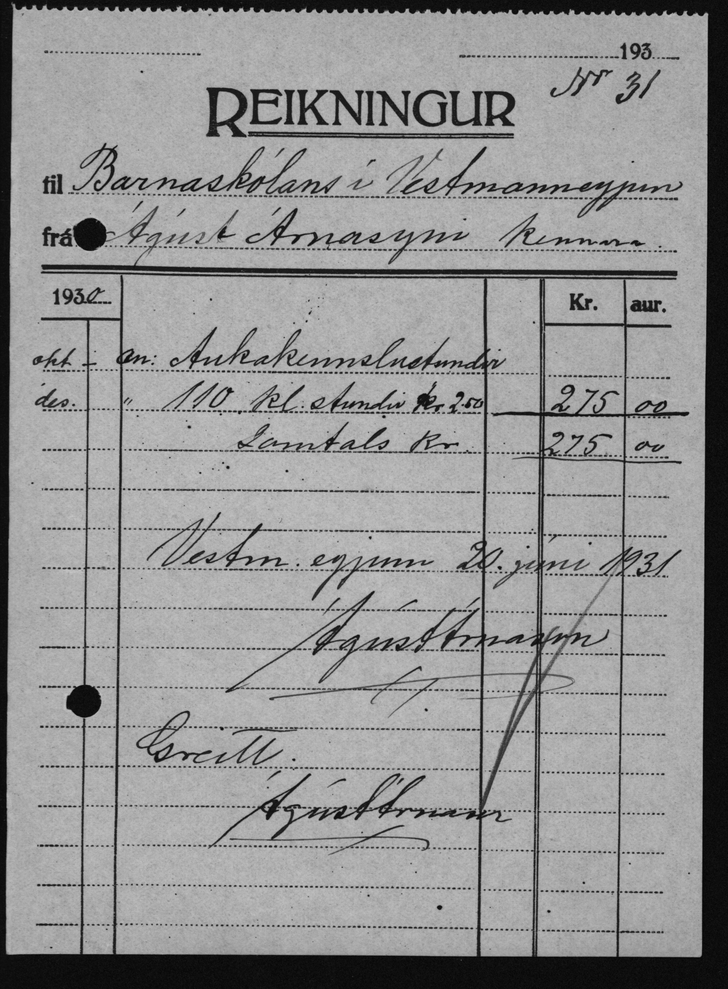 193
Nr 31
REIKNINGUR
til Barnaskólans í Vestmannaeyjum
frá Ágúst Árnasyni kennara
1930 Kr. aur.
okt - an: Aukakennslustundir
des. " 110 kl. stundir kr 2.50 275 00
Samtals kr. 275 00
Vestm. eyjum 20. júní 1931
Ágúst Árnason
Greitt.
Ágúst Árnason